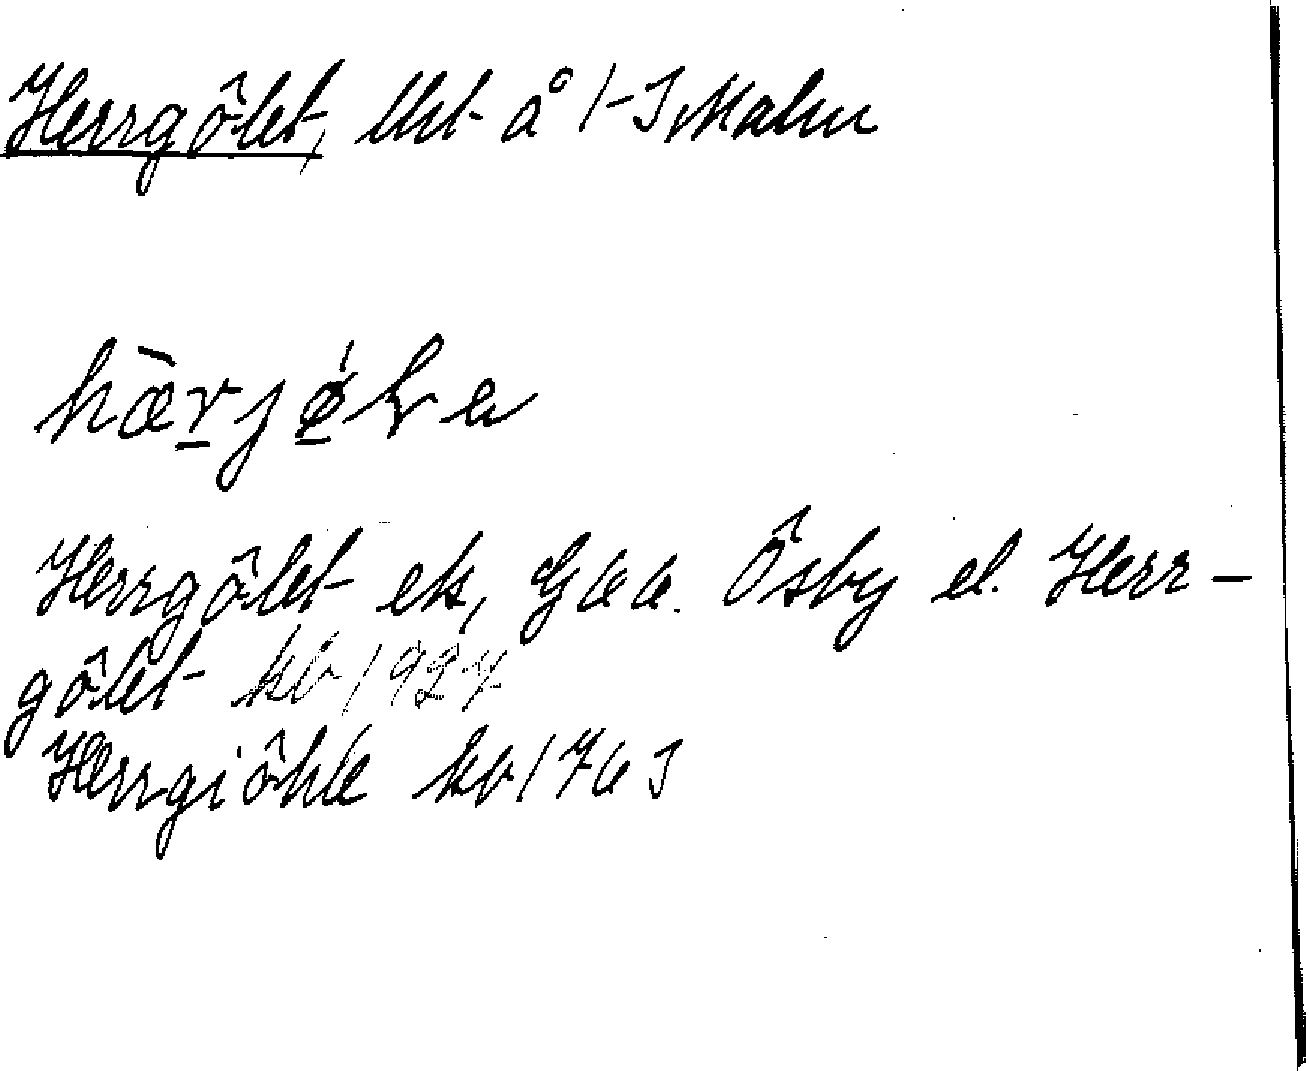 Herrgölet, lht å 1-3 Malm
hærjøla
Herrgölet ek, Gäa. Ösby el. Herr-
gölet kb 1927
Herrgiöhle kb 1763